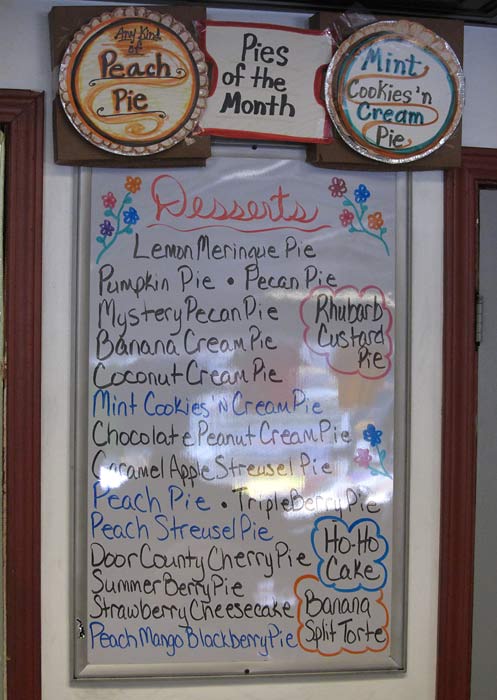 Any Kind
of
Peach
Pie
Pies
of the
Month
Mint
Cookies 'n
Cream
Pie
Desserts
Lemon Meringue Pie
Pumpkin Pie • Pecan Pie
Mystery Pecan Pie
Banana Cream Pie
Coconut Cream Pie
Rhubarb
Custard
Pie
Mint Cookies 'N Cream Pie
Chocolate Peanut Cream Pie
Caramel Apple Streusel Pie
Peach Pie • Triple Berry Pie
Peach Streusel Pie
Door County Cherry Pie
Summer Berry Pie
Strawberry Cheesecake
Peach Mango Blackberry Pie
Ho-Ho
Cake
Banana
Split Torte